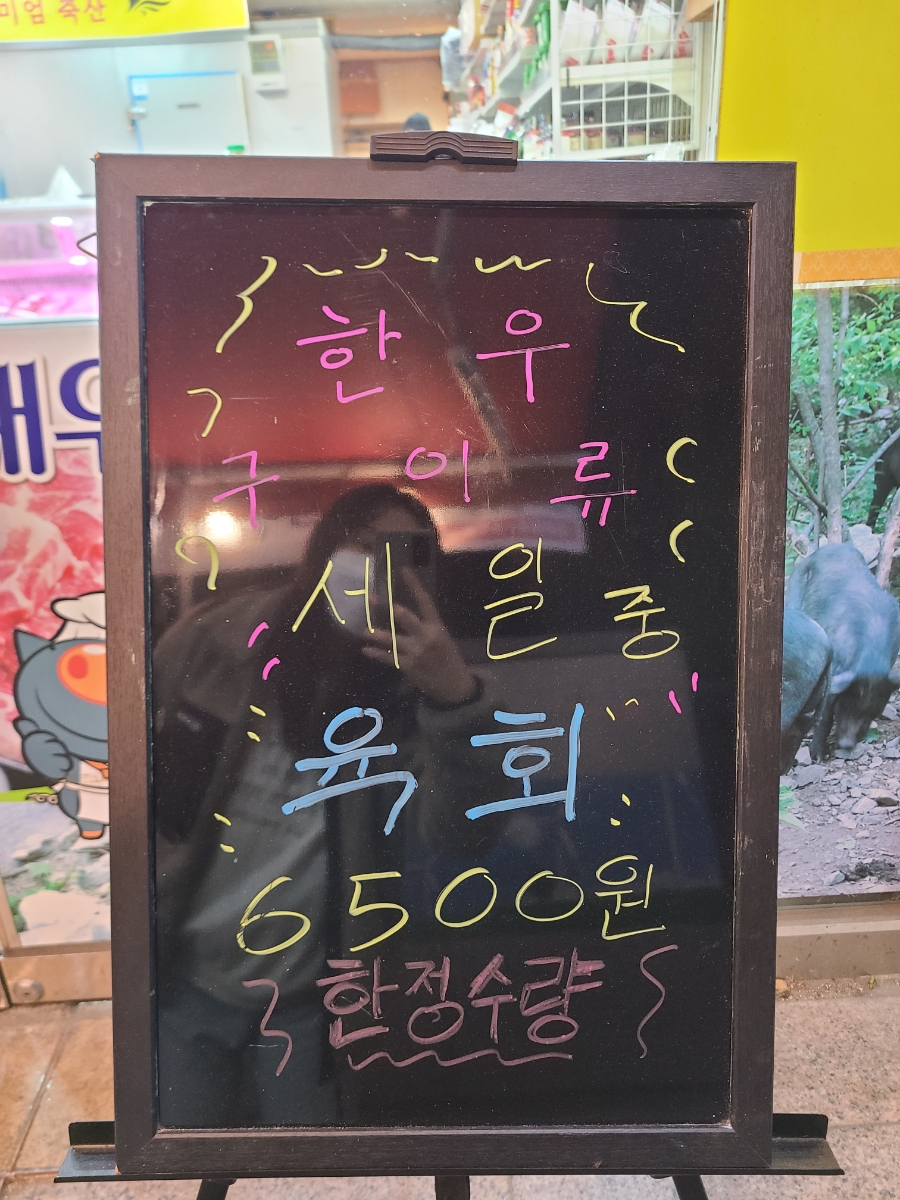 미엄 축산
한우
구이류
세일중
육회
6500원
한정수량